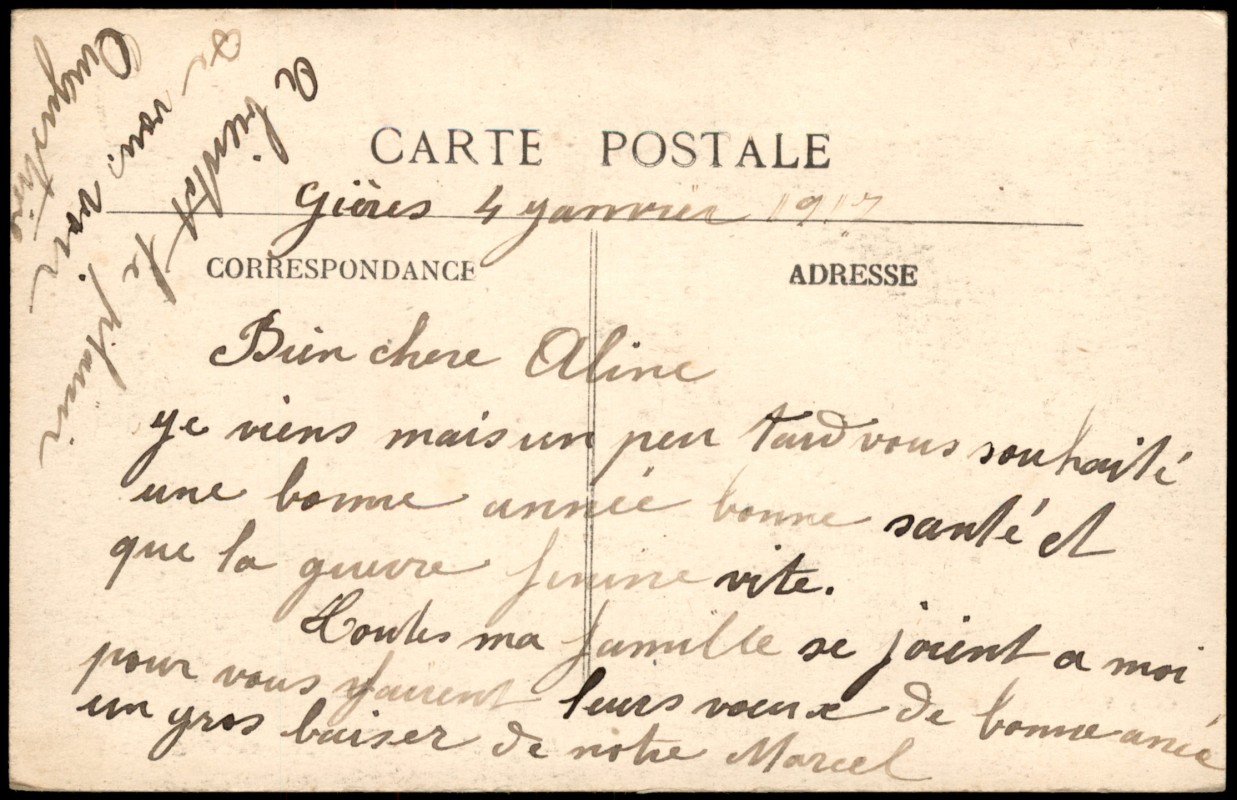 CARTE POSTALE
Gières 4 janvier 1917
CORRESPONDANCE
ADRESSE
Bien chere Aline
je viens mais un peu tard vous souhaité
une bonne année bonne santé et
que la guerre finine vite.
Toutes ma famille se joient a moi
pour vous leurs vœux de bonne année
un gros baiser de notre Marcel
A bientot le plaisir
de vous voir